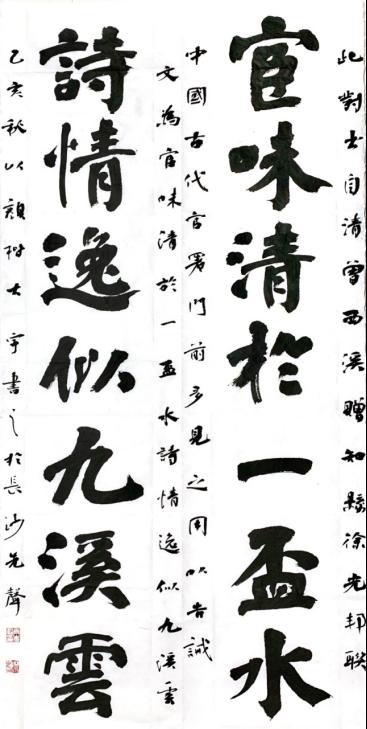 此對出自清曾西溪贈知縣徐光邦聯
宦味清於一盃水
中國古代官署門前多見之用以告誡
文為宦味清於一盃水詩情逸似九溪雲
詩情逸似九溪雲
乙亥秋以顏楷大字書之於長沙先聲